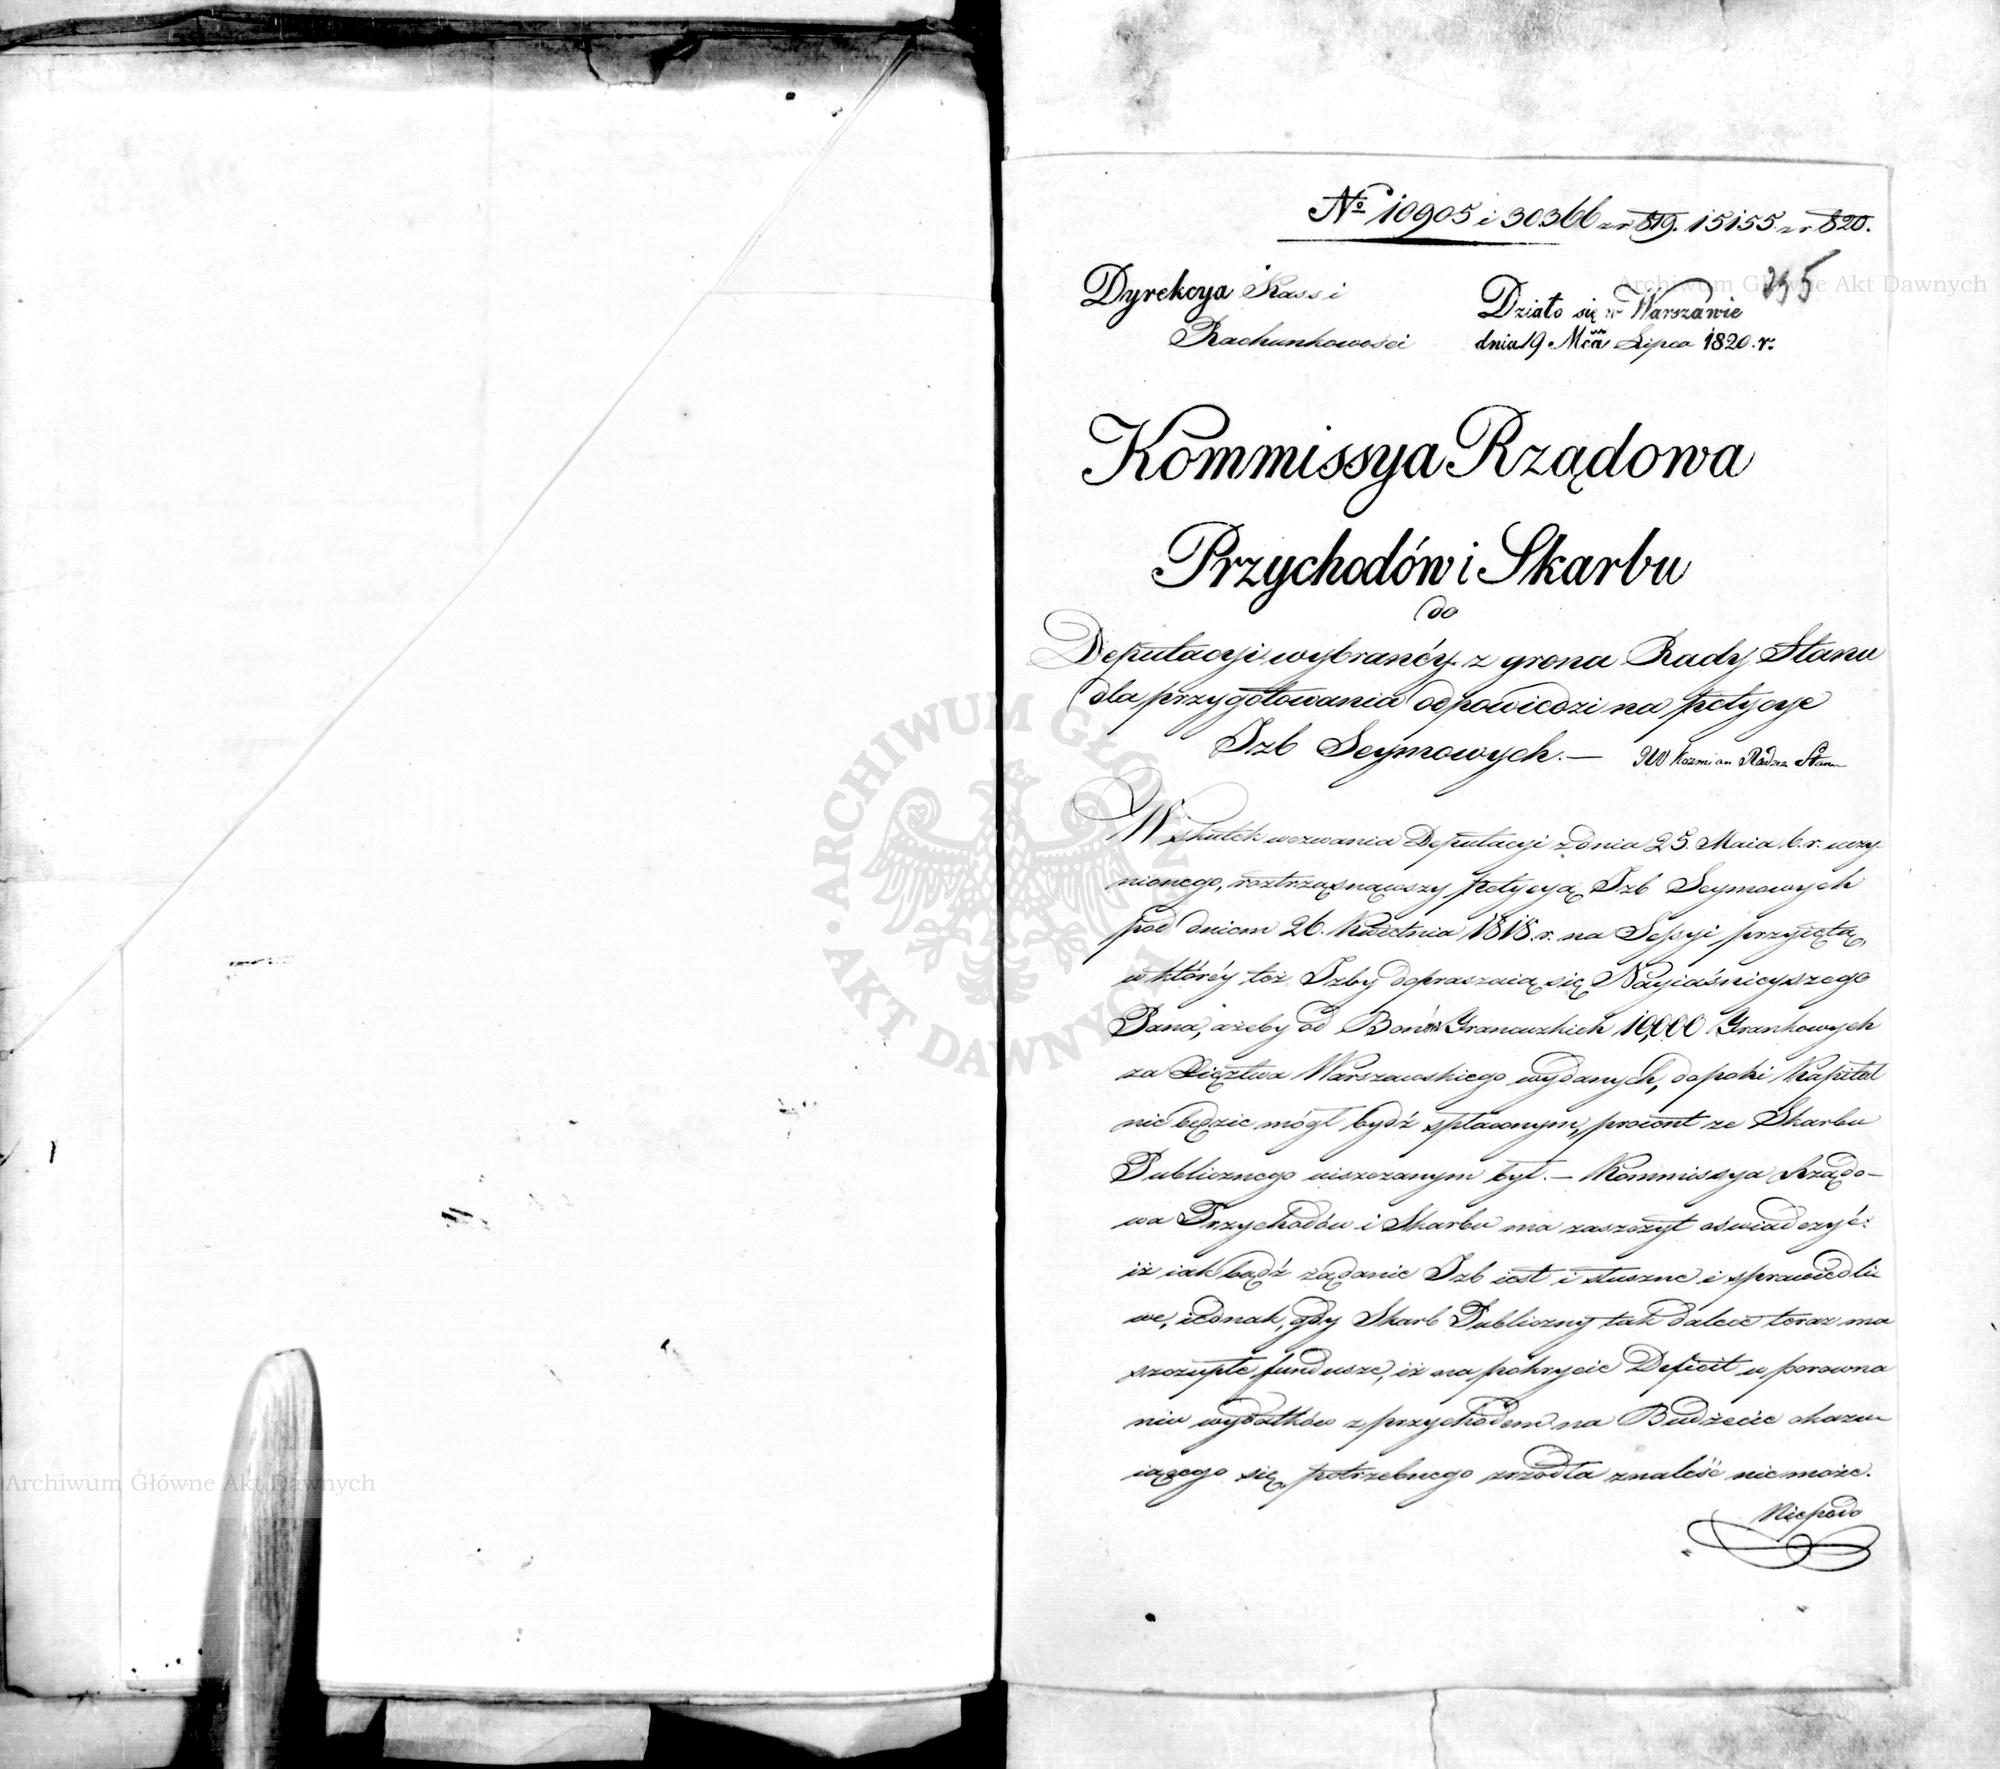 № 10905 i 30366 z r 819. 15155. z r 820.
Archiwum Główne Akt Dawnych
Dyrekcya Kass i
Rachunkowości
Działo się w Warszawie
dnia 19 Mca Lipca 1820. r.
Kommissya Rządowa
Przychodów i Skarbu
do
Deputacyi wybranéy z grona Rady Stanu
dla przygotowania odpowiedzi na petycye
Izb Seymowych. — JW Kozmian Radzca Stanu
W skutek wezwania Deputacyi z dnia 25. Maia b. r. uczy
nionego, roztrząsnąwszy petycyą Izb Seymowych
pod dniem 26. Kwietnia 1818. r. na Sessyi przyiętą,
w któréy też Izby dopraszaią się Nayiaśnieyszego
Pana, ażeby od Bonów Francuzkich 10,000 Frankowych
za Xięztwa Warszawskiego wydanych, dopoki Kapitał
nie będzie mógł bydź spłaconym, procent ze Skarbu
Publicznego uiszczanym był. — Kommissya Rządo-
wa Przychodów i Skarbu ma zaszczyt oświadczyć:
iż iak bądź żądanie Izb iest i słuszne i sprawiedli
we, iednak, gdy Skarb Publiczny tak dalece teraz ma
szczupłe fundusze, iż na pokrycie Deficit w porowna
niu wydatków z przychodem na Budżecie okazu
iącego się, potrzebnego zrzódła znaleść nie może.
Niepodo
ARCHIWUM GŁÓWNE AKT DAWNYCH
Archiwum Główne Akt Dawnych